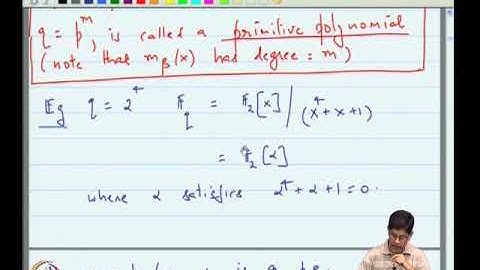 q = p^m, is called a primitive polynomial
(note that m_β(x) has degree = m)
Eg q = 2^4 𝔽_q = 𝔽_2[x] / (x^4+x+1)
= 𝔽_2[α]
where α satisfies α^4 + α + 1 = 0.
is a